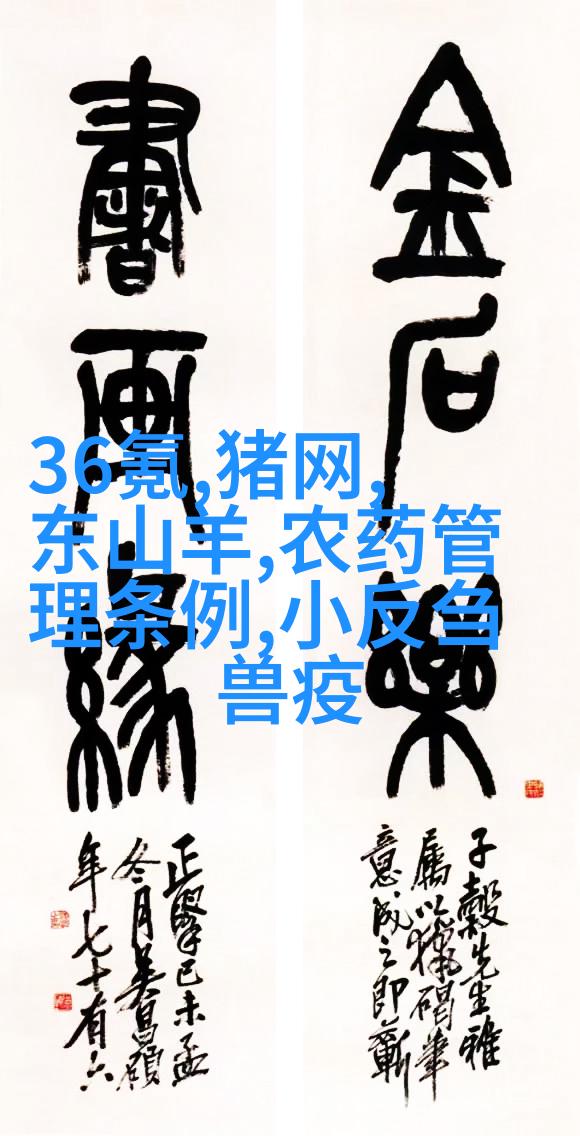 金石樂
書画緣
子穀先生雅
屬以獵碣筆
意成之即蘄
正擘己未孟
冬月吴昌碩
年七十有六
36氪,猪网,
东山羊,农药管
理条例,小反刍
兽疫